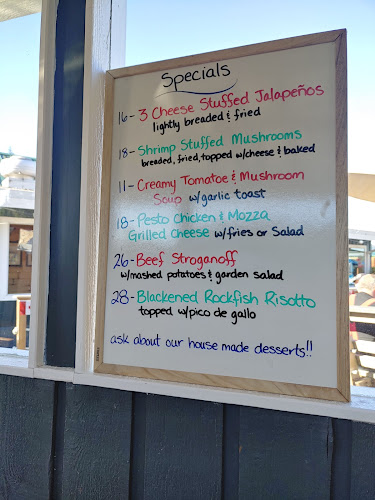 Specials
16- 3 Cheese Stuffed Jalapeños
lightly breaded & fried
18- Shrimp Stuffed Mushrooms
breaded, fried, topped w/cheese & baked
11- Creamy Tomatoe & Mushroom
Soup w/garlic toast
18- Pesto Chicken & Mozza
Grilled Cheese w/fries or Salad
26- Beef Stroganoff
w/mashed potatoes & garden salad
28- Blackened Rockfish Risotto
topped w/pico de gallo
ask about our house made desserts!!